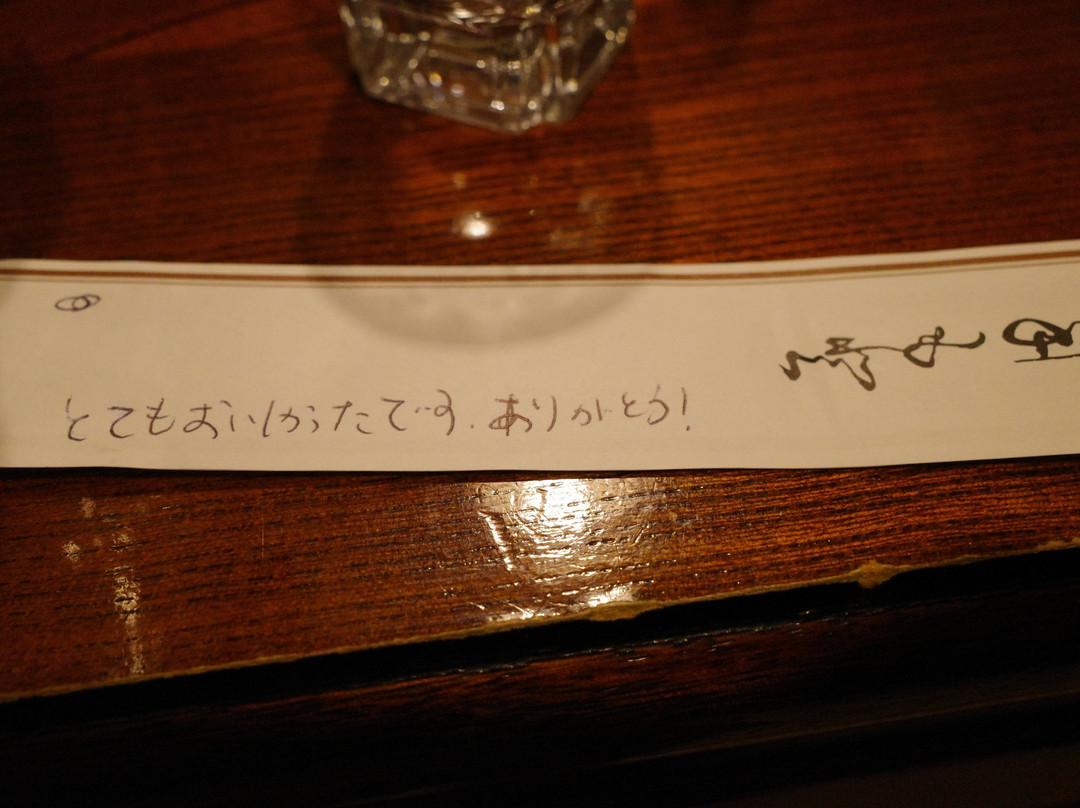 とてもおいしかったです.ありがとう!